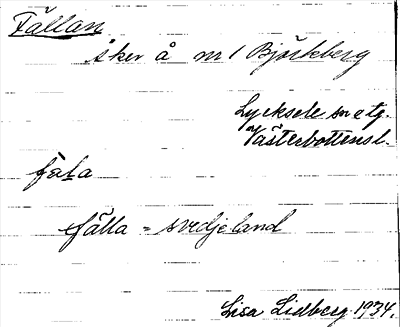 Fällan
åker å nr 1 Björkberg
Lycksele sn o tg.
Västerbottens l.
fäla
fälla = svedjeland
Lisa Lidberg 1934.